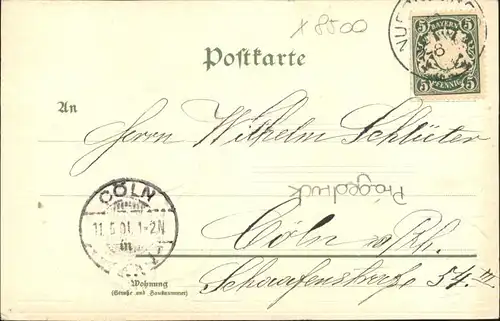 x 8500
Postkarte
5 BAYERN 5
5 PFENNIG 5
An
Herrn Wilhelm Schlüter
Prägedruck
CÖLN
11.5.01. 1-2N
Cöln a/Rh.
Schaafenstraße 54. III
Wohnung
(Straße und Hausnummer)